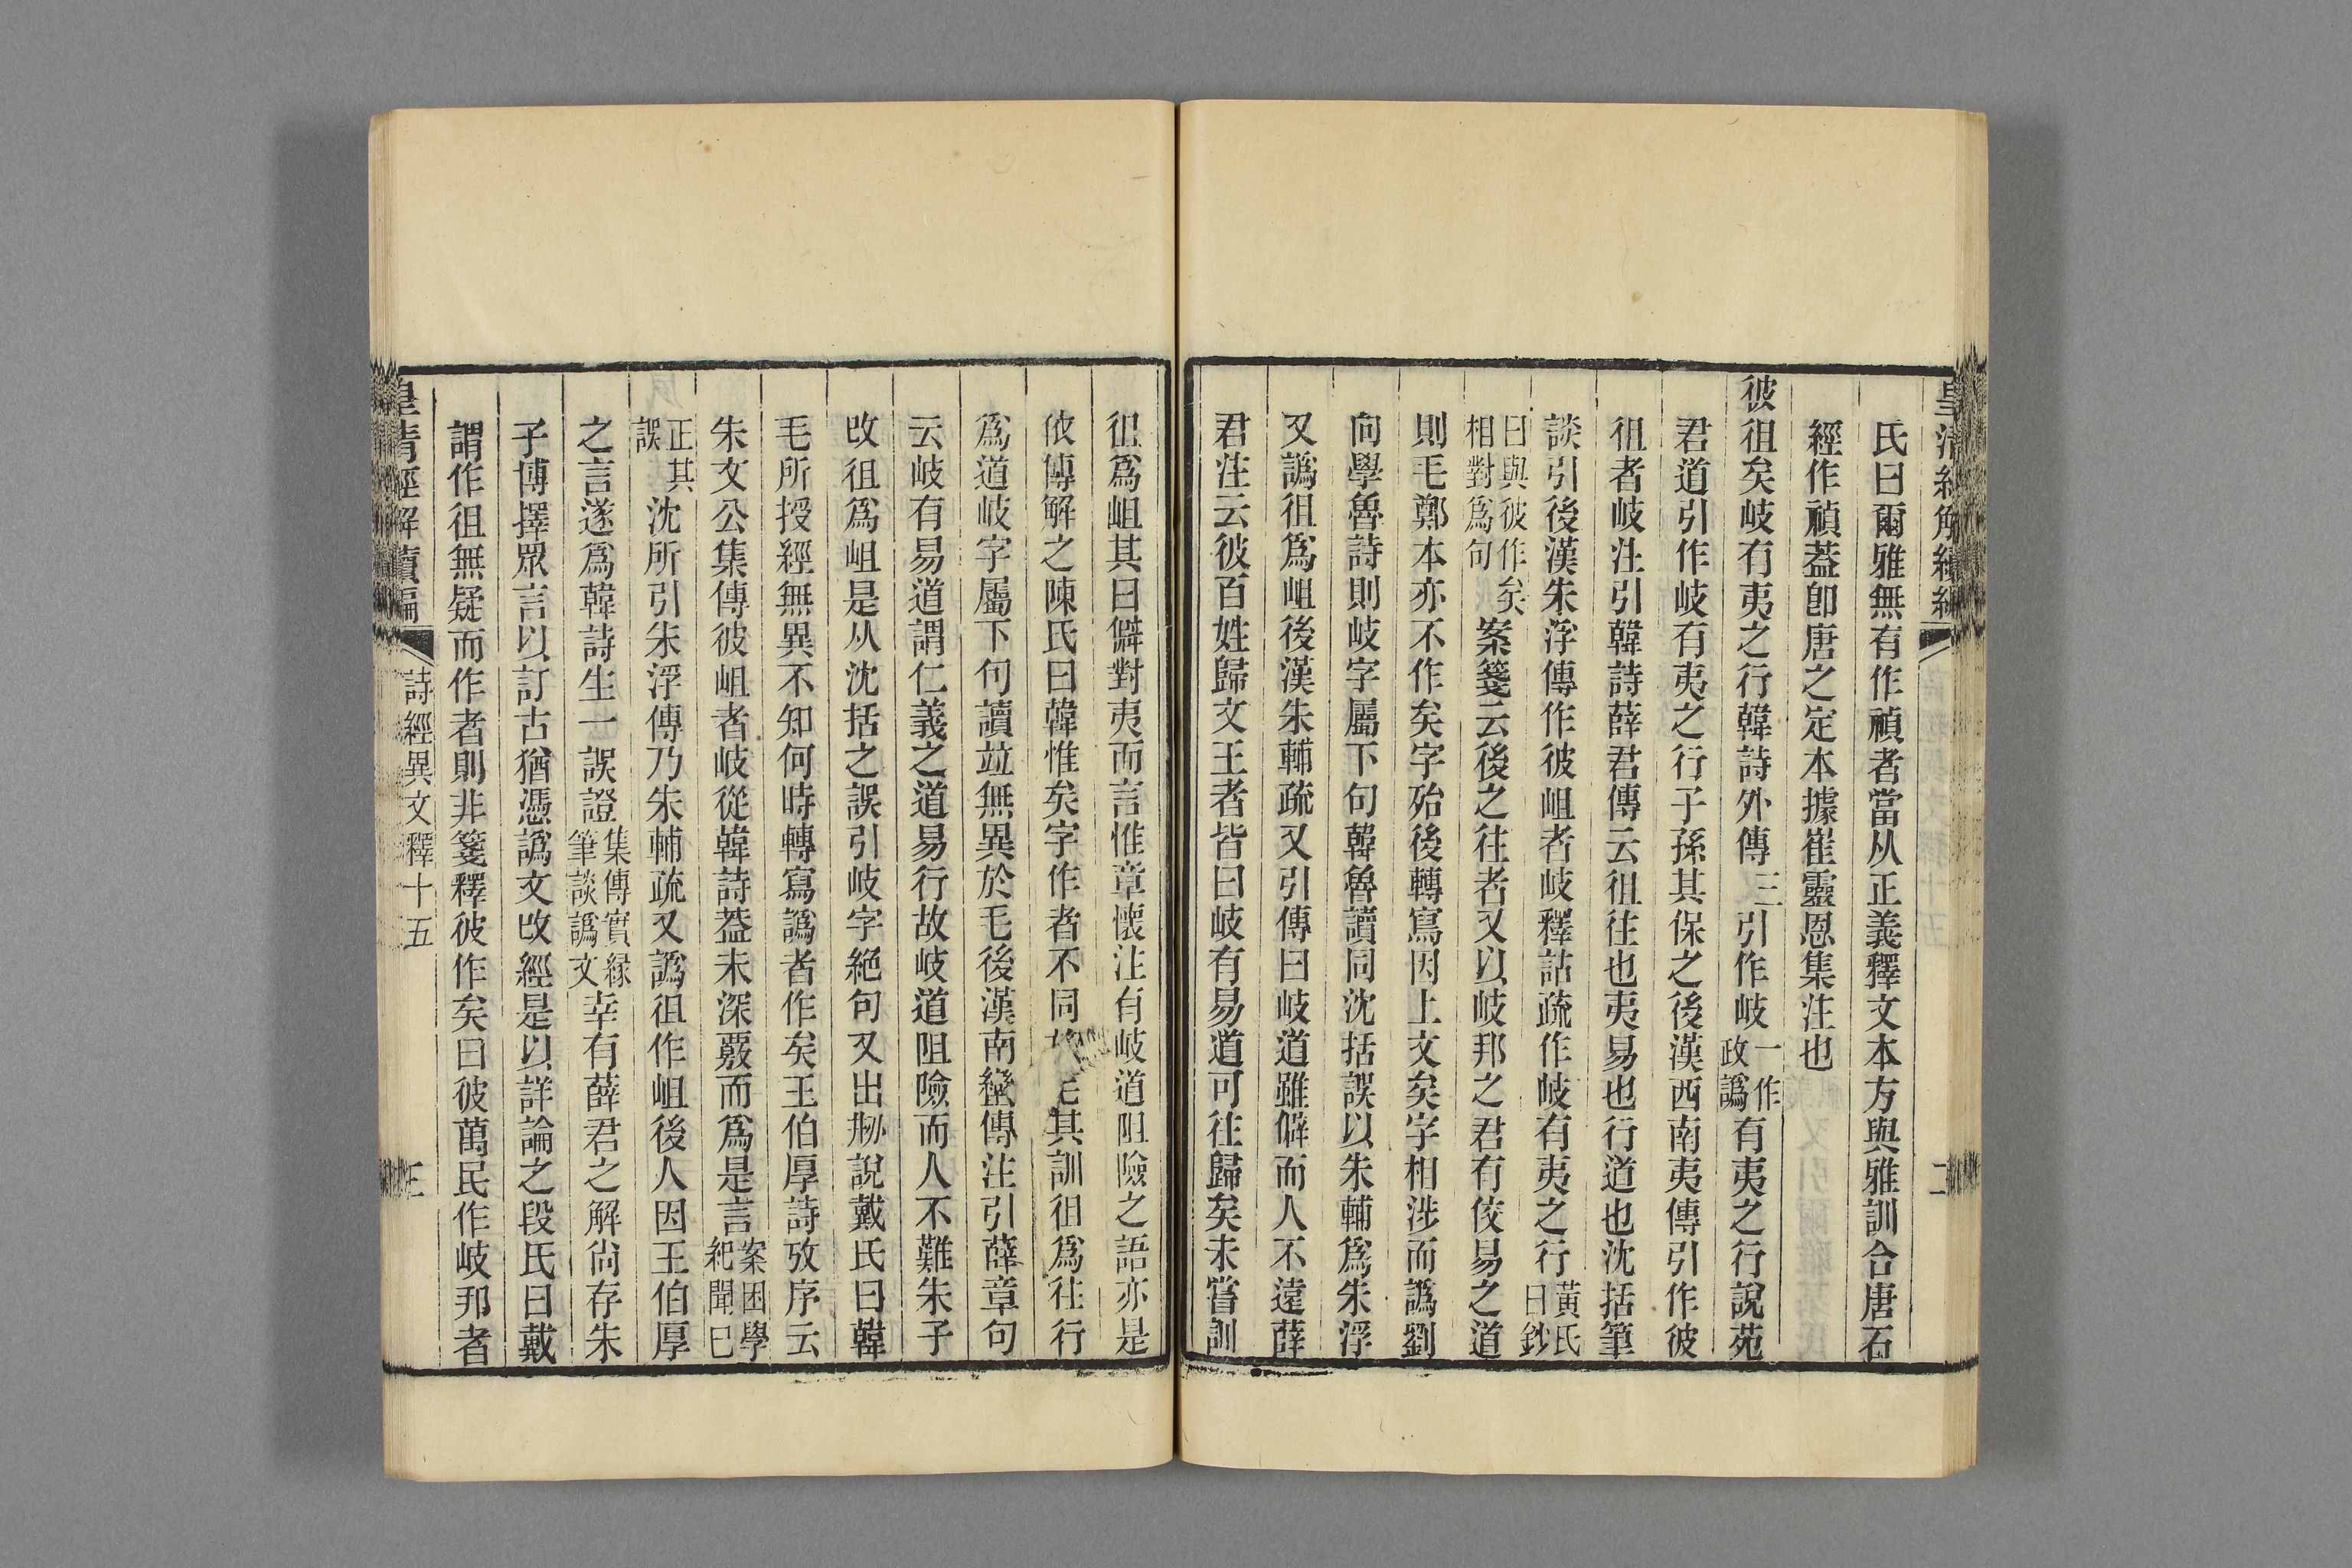 氏曰爾雅無有作禎者當从正義釋文本方與雅訓合唐石
經作禎葢卽唐之定本據崔靈恩集注也
彼徂矣岐有夷之行韓詩外傳三引作岐一作政譌有夷之行說苑
君道引作岐有夷之行子孫其保之後漢西南夷傳引作彼
徂者岐注引韓詩薛君傳云徂往也夷易也行道也沈括筆
談引後漢朱浮傳作彼岨者岐釋詁疏作岐有夷之行黃氏日鈔
曰與彼作矣相對爲句案箋云後之往者又以岐邦之君有佼易之道
則毛鄭本亦不作矣字殆後轉寫因上文矣字相涉而譌劉
向學魯詩則岐字屬下句韓魯讀同沈括誤以朱輔爲朱浮
又譌徂爲岨後漢朱輔疏又引傳曰岐道雖僻而人不遠薛
君注云彼百姓歸文王者皆曰岐有易道可往歸矣未嘗訓
徂爲岨其曰僻對夷而言惟章懷注有岐道阻險之語亦是
依傳解之陳氏曰韓惟矣字作者不同其訓徂爲往行
爲道岐字屬下句讀竝無異於毛後漢南蠻傳注引薛章句
云岐有易道謂仁義之道易行故岐道阻險而人不難朱子
改徂爲岨是从沈括之誤引岐字絕句又出刱說戴氏曰韓
毛所授經無異不知何時轉寫譌者作矣王伯厚詩攷序云
朱文公集傳彼岨者岐從韓詩葢未深覈而爲是言案困學紀聞已
正其誤沈所引朱浮傳乃朱輔疏又譌徂作岨後人因王伯厚
之言遂爲韓詩生一誤證集傳實緣筆談譌文幸有薛君之解尙存朱
子博擇眾言以訂古猶憑譌文改經是以詳論之段氏曰戴
謂作徂無疑而作者則非箋釋彼作矣曰彼萬民作岐邦者
皇清經解續編
詩經異文釋十五